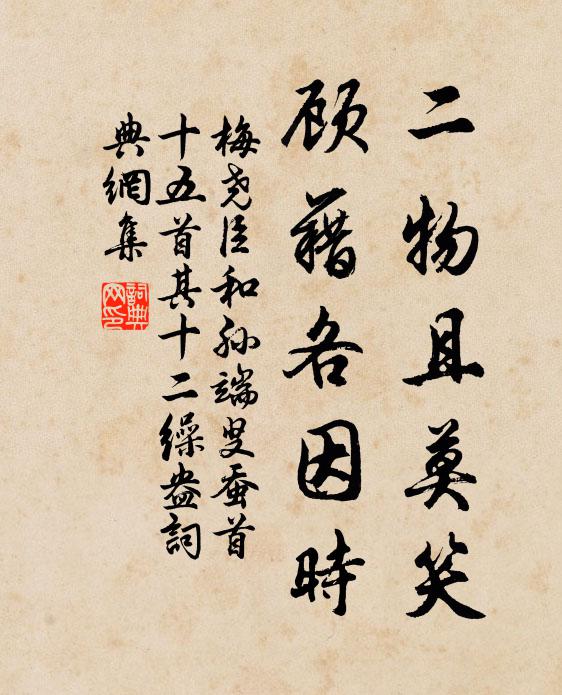 二物且莫笑
顾藉各因時
梅尧臣和孙端叟蚕首
十五首其十二繰盎詞
典網集
詞典
网印